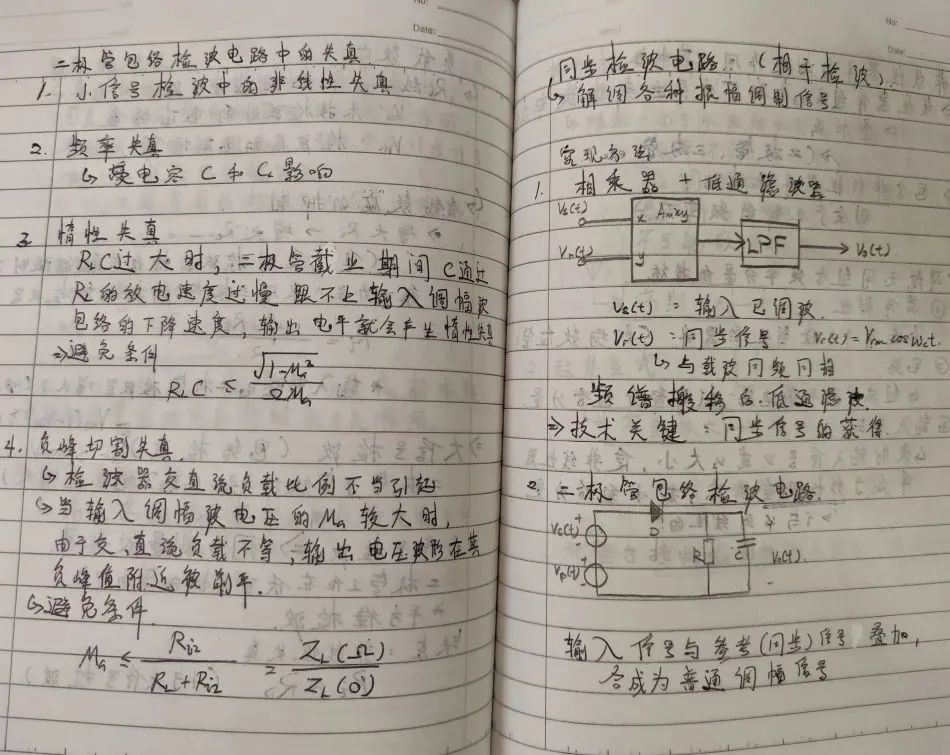 Date:
二极管包络检波电路中的失真
1. 小信号检波中的非线性失真
2. 频率失真
↳ 受电容 C 和 Cc 影响
3. 惰性失真
RLC过大时,二极管截止期间 C通过
RL的放电速度过慢 跟不上输入调幅波
包络的下降速度,输出电平就会产生惰性失真
⇒避免条件
RLC ≤ √(1-Ma²) / ΩMa
4. 负峰切割失真
↳ 检波器交直流负载比例不当引起
↳ 当输入调幅波电压的Ma较大时,
由于交、直流负载不等,输出电压波形在其
负峰值附近被削平.
↳避免条件
Ma ≤ Ri2 / (RL+Ri2) = ZL(Ω) / ZL(0)
No:
Date:
同步检波电路:(相干检波).
↳ 解调各种振幅调制信号
实现方法
1. 相乘器 + 低通滤波器
Vs(t) x Amxy
Vr(t) y LPF Vo(t).
Vs(t) : 输入已调波.
Vr(t) : 同步信号 Vr(t)=Vrm cosωct.
↳ 与载波同频同相
频谱搬移后低通滤波.
⇒ 技术关键 : 同步信号的获得.
2. 二极管包络检波电路.
Vs(t) + - D R C + Vo(t). -
Vr(t) + -
输入信号与参考(同步)信号叠加,
合成为普通调幅信号